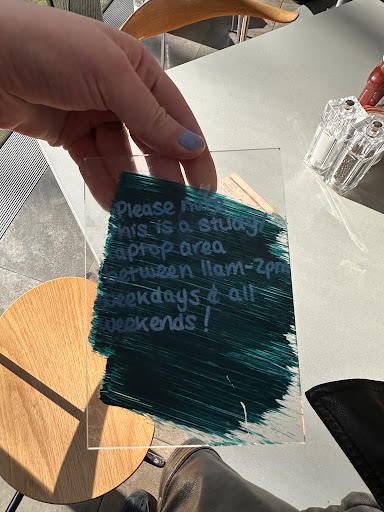 Please note
this is a study/
laptop area
between 11am-2pm
weekdays & all
weekends!